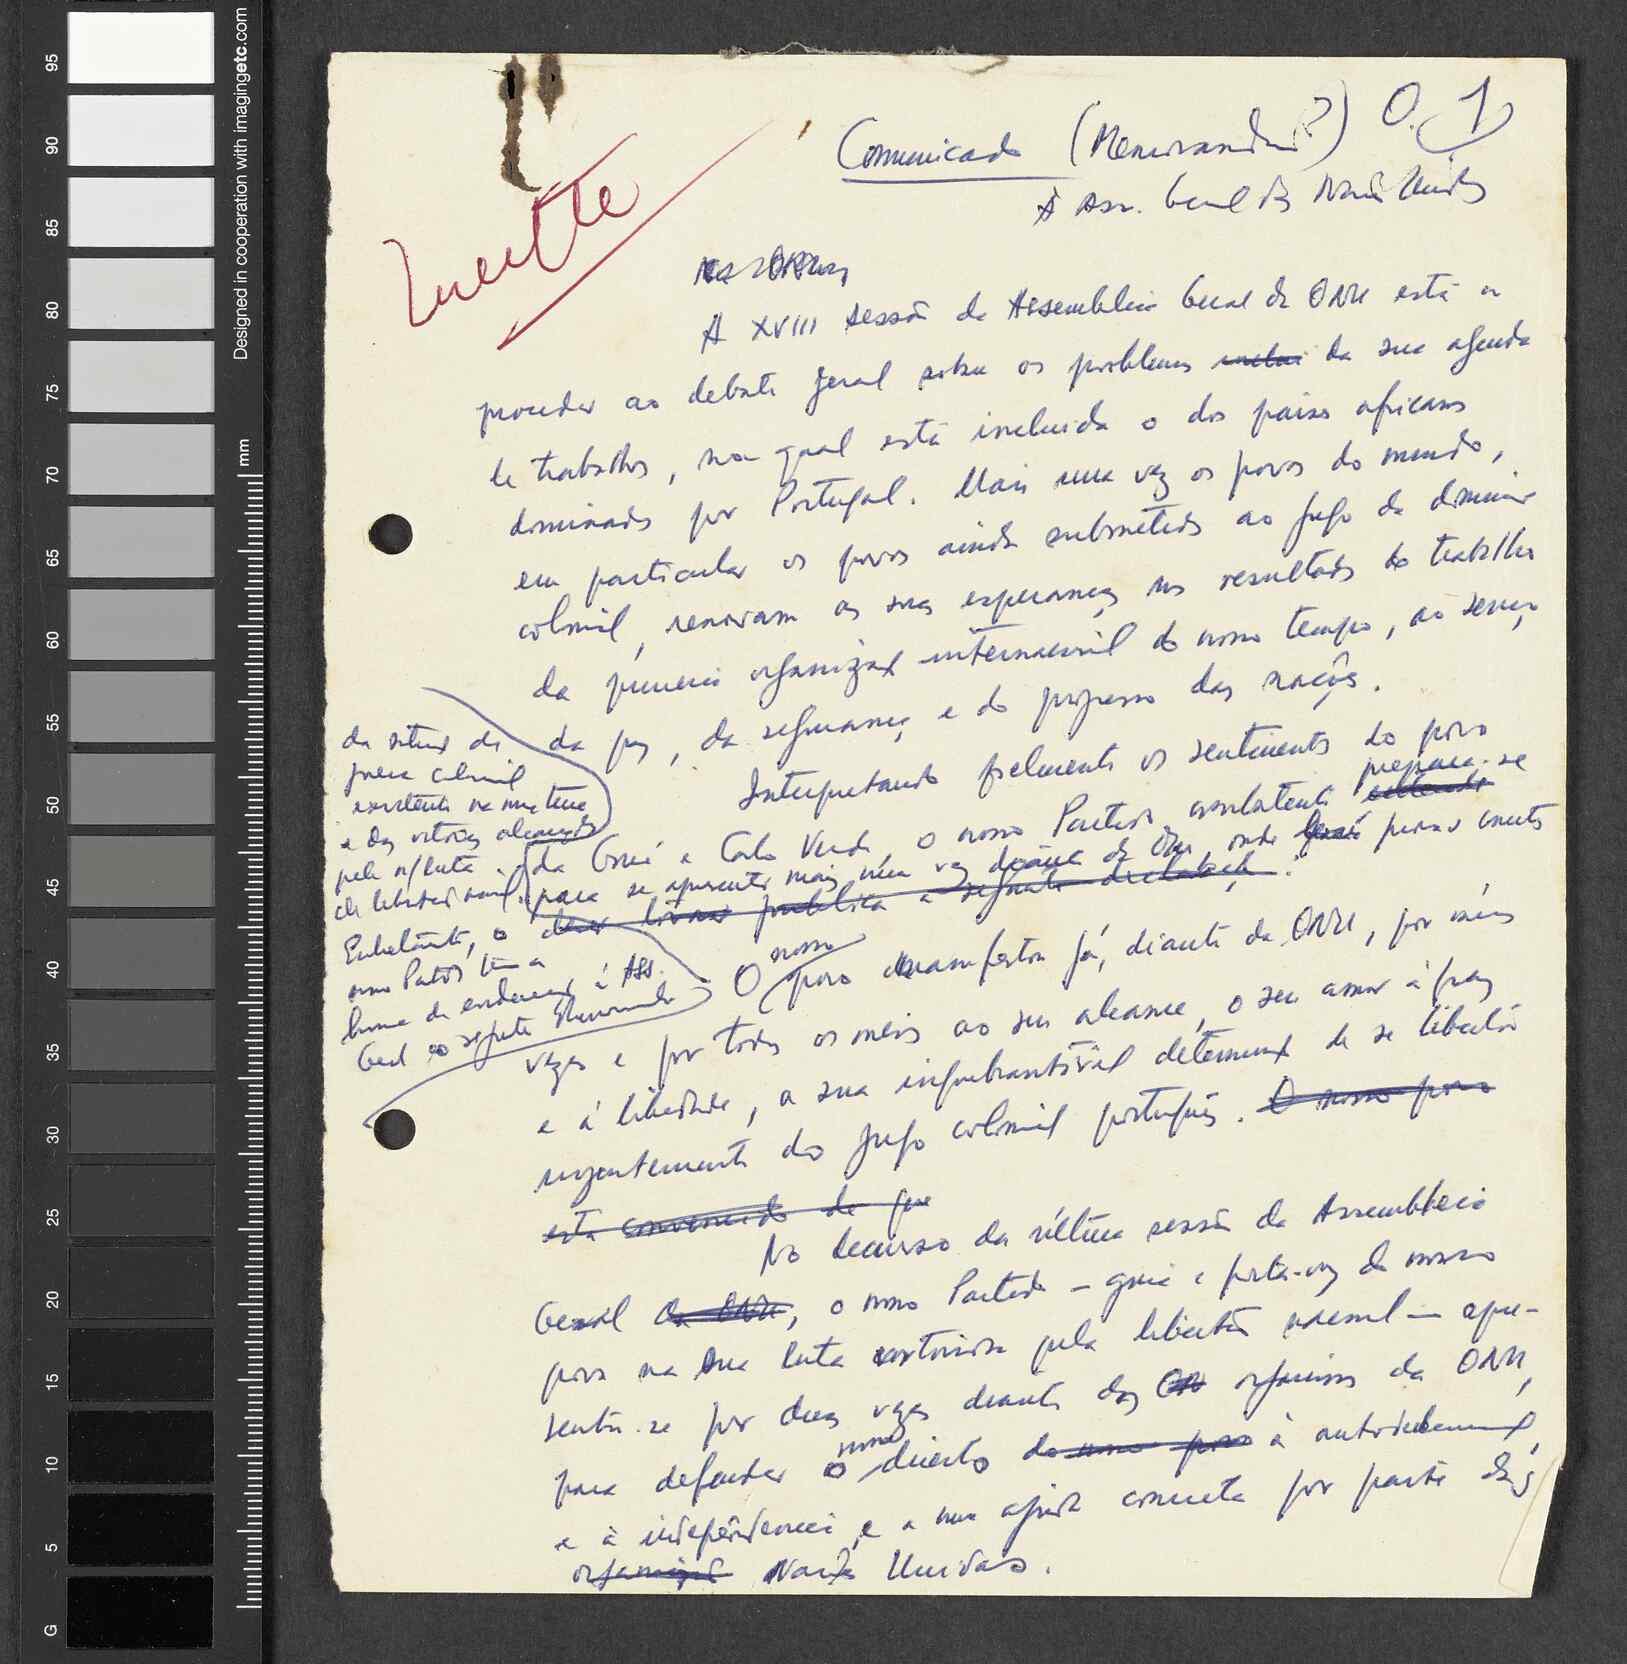 Comunicado (Memorandum?) O. 1
À Ass. Geral das Nações Unidas
Inédito
A XVIII sessão da Assembleia Geral da ONU está a
proceder ao debate geral sobre os problemas da sua agenda
de trabalhos, na qual está incluida o dos países africanos
dominados por Portugal. Mais uma vez os povos do mundo,
em particular os povos ainda submetidos ao jugo da dominação
colonial, renovam as suas esperanças nos resultados do trabalho
da primeira organização internacional do nosso tempo, ao serviço
da paz, da segurança e do progresso das nações.
Interpretando fielmente os sentimentos do povo
prepara-se
da Guiné e Cabo Verde, o nosso Partido, combatente
para se apresentar mais uma vez diante da ONU, onde
dar pública a seguinte declaração:
da situação de
guerra colonial
existente na nossa terra
e das vitórias alcançadas
pela n/luta
de libertação nacional.
Entretanto, o
nosso Partido tem a
honra de endereçar à Ass.
Geral o seguinte Memorando
O nosso povo manifestou já, diante da ONU, por várias
vezes e por todos os meios ao seu alcance, o seu amor à paz
e à liberdade, a sua inquebrantável determinação de se libertar
urgentemente do jugo colonial português. O nosso povo
está convencido de que
No decurso da última sessão da Assembleia
Geral da ONU, o nosso Partido — guia e porta-voz do nosso
povo na sua luta vitoriosa pela libertação nacional — apre-
sentou-se por duas vezes diante dos orgãos da ONU,
para defender o nosso direito do nosso povo à autodeterminação
e à independência, e a uma ajuda concreta por parte das
organização Nações Unidas.